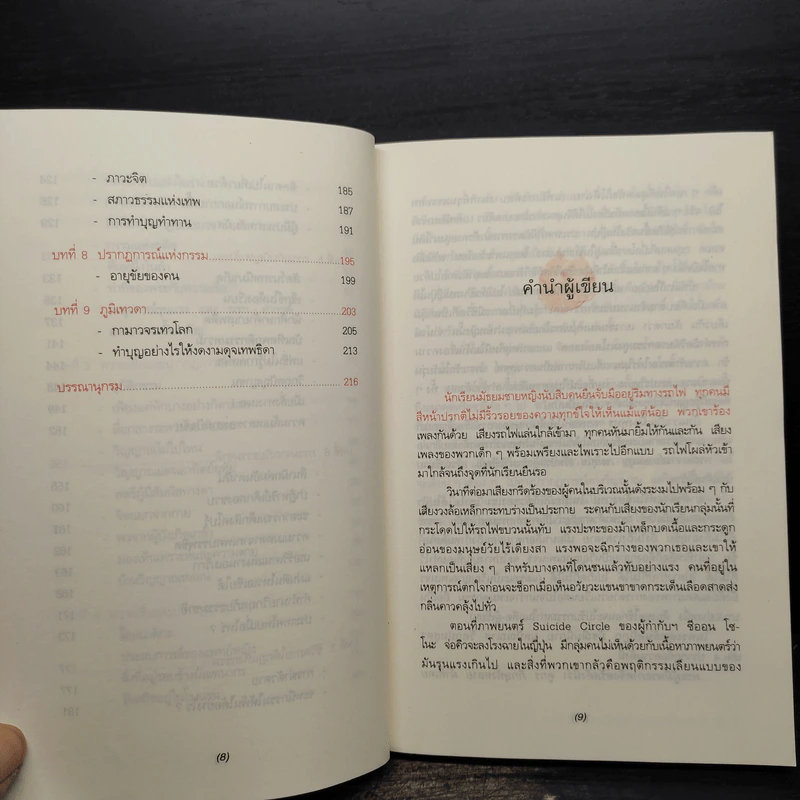 - ภาวะจิต 185
- สภาวธรรมแห่งเทพ 187
- การทำบุญทำทาน 191
บทที่ 8 ปรากฏการณ์แห่งกรรม 195
- อายุขัยของคน 199
บทที่ 9 ภูมิเทวดา 203
- กามาวจรเทวโลก 205
- ทำบุญอย่างไรให้งดงามดุจเทพธิดา 213
บรรณานุกรม 216
(8)
คำนำผู้เขียน
นักเรียนมัธยมชายหญิงนับสิบคนยืนจับมืออยู่ริมทางรถไฟ ทุกคนมี
สีหน้าปรกติไม่มีริ้วรอยของความทุกข์ใจให้เห็นแม้แต่น้อย พวกเขาร้อง
เพลงกันด้วย เสียงรถไฟแล่นใกล้เข้ามา ทุกคนหันมายิ้มให้กันและกัน เสียง
เพลงของพวกเด็ก ๆ พร้อมเพรียงและไพเราะไปอีกแบบ รถไฟโผล่หัวเข้า
มาใกล้จนถึงจุดที่นักเรียนยืนรอ
วินาทีต่อมาเสียงกรีดร้องของผู้คนในบริเวณนั้นดังระงมไปพร้อม ๆ กับ
เสียงวงล้อเหล็กกระทบรางเป็นประกาย ระคนกับเสียงของนักเรียนกลุ่มนั้นที่
กระโดดไปให้รถไฟขบวนนั้นทับ แรงปะทะของม้าเหล็กบดเนื้อและกระดูก
อ่อนของมนุษย์วัยไร้เดียงสา แรงพอจะฉีกร่างของพวกเธอและเขาให้
แหลกเป็นเสี่ยง ๆ สำหรับบางคนที่โดนชนแล้วทับอย่างแรง คนที่อยู่ใน
เหตุการณ์ตกใจก่อนจะช็อกเมื่อเห็นอวัยวะแขนขาขาดกระเด็นเลือดสาดส่ง
กลิ่นคาวคลุ้งไปทั่ว
ตอนที่ภาพยนตร์ Suicide Circle ของผู้กำกับฯ ซีออน โซ-
โนะ จ่อคิวจะลงโรงฉายในญี่ปุ่น มีกลุ่มคนไม่เห็นด้วยกับเนื้อหาภาพยนตร์ว่า
มันรุนแรงเกินไป และสิ่งที่พวกเขากลัวคือพฤติกรรมเลียนแบบของ
(9)